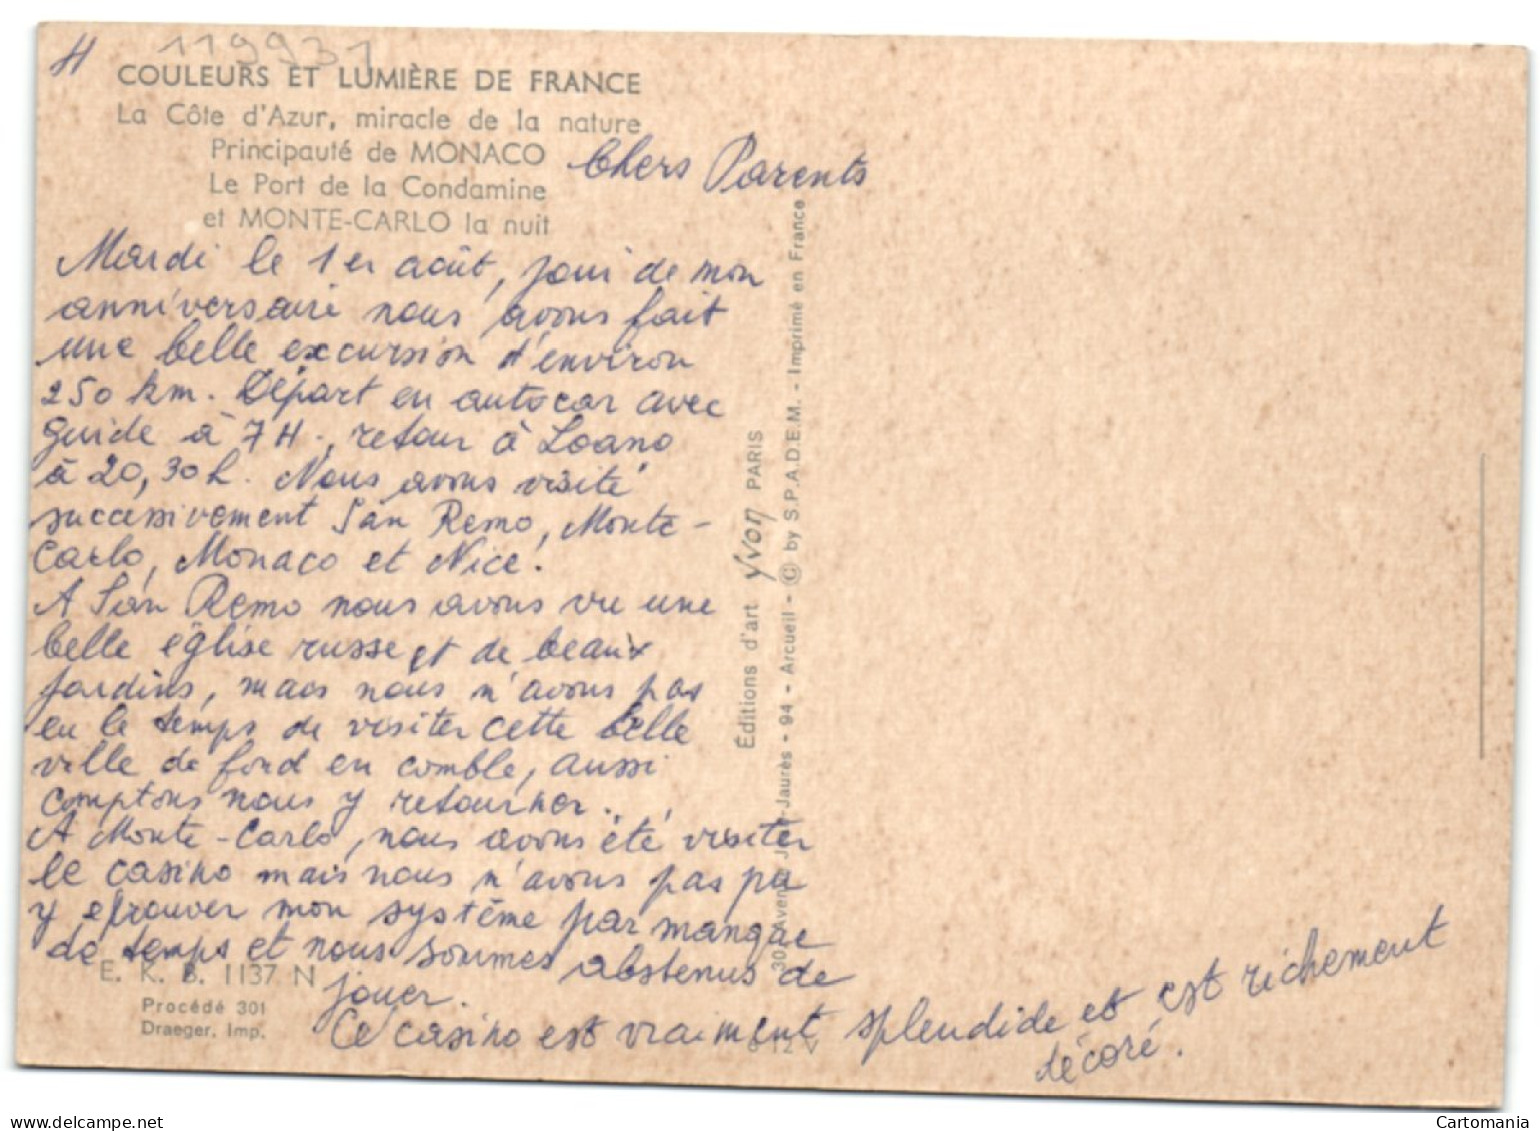 H
119931
COULEURS ET LUMIÈRE DE FRANCE
La Côte d'Azur, miracle de la nature
Principauté de MONACO
Le Port de la Condamine
et MONTE-CARLO la nuit
Chers Parents
Mardi le 1er août, jour de mon
anniversaire nous avons fait
une belle excursion d'environ
250 km. Départ en autocar avec
guide à 7 H., retour à Loano
à 20,30h. Nous avons visité
successivement San Remo, Monte-
Carlo, Monaco et Nice.
A San Remo nous avons vu une
belle église russe et de beaux
jardins, mais nous n'avons pas
eu le temps de visiter cette belle
ville de fond en comble, aussi
comptons nous y retourner...
A Monte-Carlo, nous avons été visiter
le casino mais nous n'avons pas pu
y éprouver mon système par manque
de temps et nous sommes abstenus de
jouer.
Ce casino est vraiment splendide et est richement
décoré.
Éditions d'art Yvon PARIS
30, Avenue Jean-Jaurès - 94 - Arcueil - © by S.P.A.D.E.M. - Imprimé en France
E. K. B. 1137 N
Procédé 301
Draeger, Imp.
6 12 V
delcampe.net
Cartomania